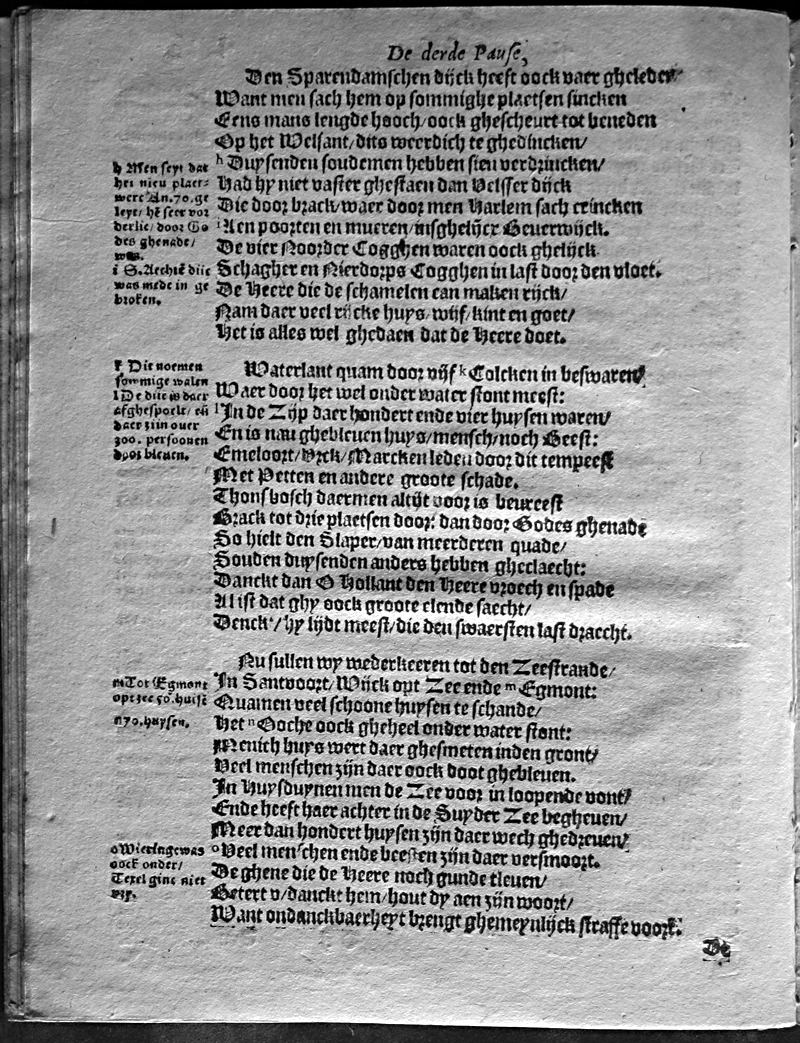 De derde Pause,
Den Sparendamschen dijck heeft oock vaer gheleden
Want men sach hem op sommighe plaetsen sincken
Eens mans lengde hooch/oock ghescheurt tot beneden
Op het Welsant/dits weerdich te ghedincken/
h Duysenden soudemen hebben sien verdrincken/
Had hy niet vaster ghestaen dan Velsser dijck
Die door brack/waer door men Harlem sach crincken
i Aen poorten en mueren/insghelijcx Beuerwijck.
De vier Noorder Cogghen waren oock ghelijck
Schagher en Nierdorps Cogghen in last door den vloet.
De Heere die de schamelen can maken rijck/
Nam daer veel rijcke huys/wijf/kint en goet/
Het is alles wel ghedaen dat de Heere doet.
h Men seyt dat
het nieu plaet-
were An.70.ge
leyt/ hē seer vor
derlic/ door Go
des ghenade/
was.
i S. Aechtē dijc
was mede in ge
broken.
Waterlant quam door vijf k Colcken in beswaren/
Waer door het wel onder water stont meest:
l In de Zijp daer hondert ende vier huysen waren/
En is nau ghebleuen huys/mensch/noch Beest:
Emeloort/Vrck/Marcken leden door dit tempeest
Met Petten en andere groote schade.
Thonsbosch daermen altijt voor is beureest
Brack tot drie plaetsen door: dan door Godes ghenade
So hielt den Slaper/van meerderen quade/
Souden duysenden anders hebben gheclaecht:
Danckt dan O Hollant den Heere vroech en spade
Al ist dat ghy oock groote elende saecht/
Denck/ hy lijdt meest/die den swaersten last draecht.
k Die noemen
sommige walen
l De dijc is daer
afghespoelt/ eñ
daer zijn ouer
300. persoonen
door bleuen.
Nu sullen wy wederkeeren tot den Zeestrande/
In Santvoort/Wijck opt Zee ende m Egmont:
Quamen veel schoone huysen te schande/
Het n Ooche oock gheheel onder water stont:
Menich huys wert daer ghesmeten inden gront/
Veel menschen zijn daer oock doot ghebleuen.
In Huysduynen men de Zee voor in loopende vont/
Ende heeft haer achter in de Suyder Zee begheuen/
Meer dan hondert huysen zijn daer wech ghedreuen/
o Veel menschen ende beesten zijn daer versmoort.
De ghene die de Heere noch gunde tleuen/
Betert v/danckt hem/hout dy aen zijn woort/
Want ondanckbaerheyt brengt ghemeynlijck straffe voort.
m Tot Egmont
opt zee 50.huisē
n 70.huysen.
o Wieringe was
oock onder/
Texel ginc niet
vry.
De